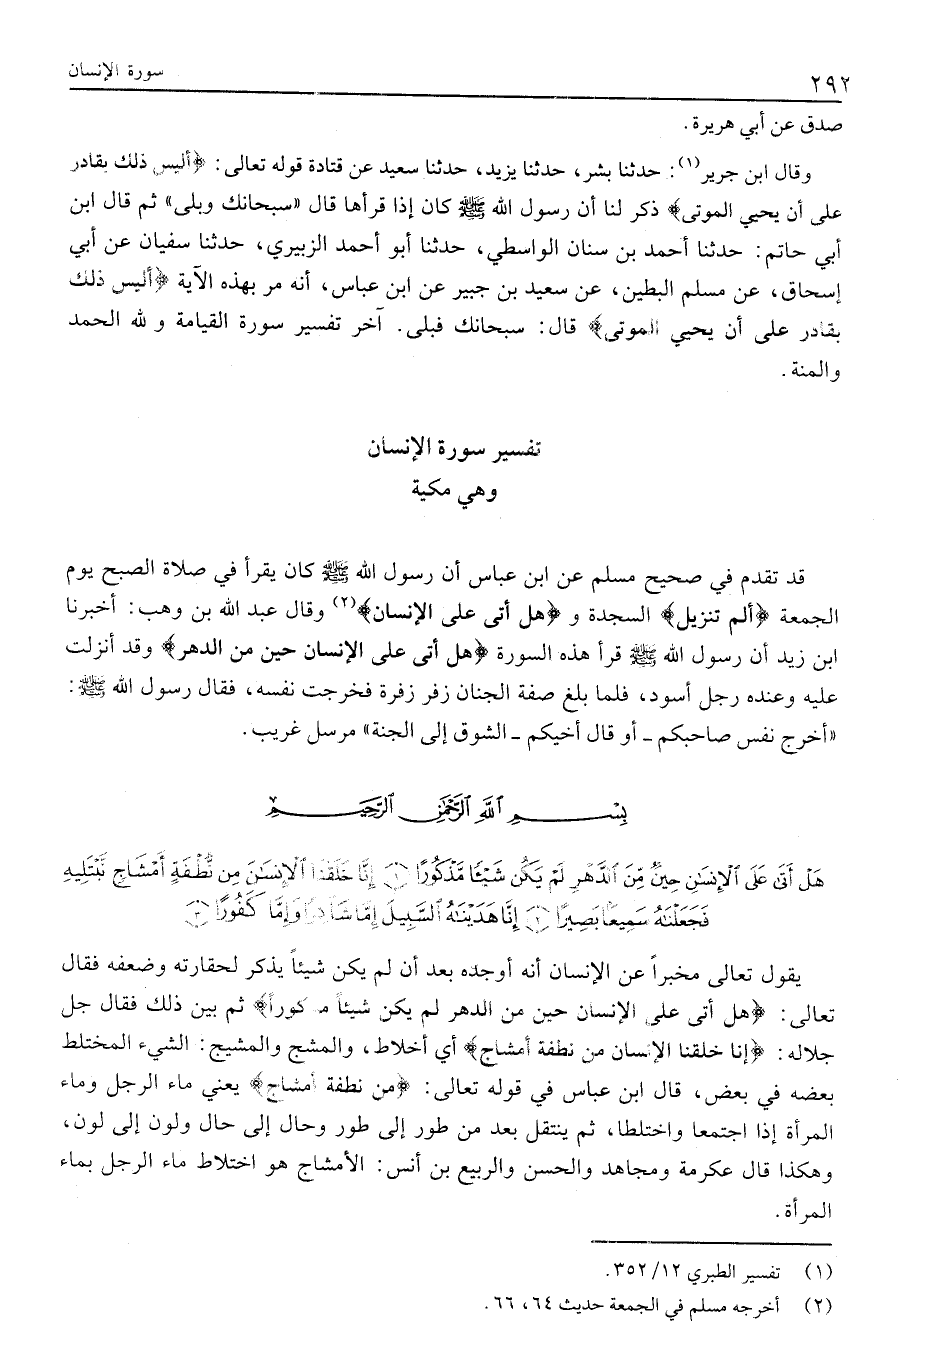 سورة الإنسان
٢٩٢
صدق عن أبي هريرة.
وقال ابن جرير(١): حدثنا بشر، حدثنا يزيد، حدثنا سعيد عن قتادة قوله تعالى: ﴿أليس ذلك بقادر
على أن يحيي الموتى﴾ ذكر لنا أن رسول الله ﷺ كان إذا قرأها قال «سبحانك وبلى» ثم قال ابن
أبي حاتم: حدثنا أحمد بن سنان الواسطي، حدثنا أبو أحمد الزبيري، حدثنا سفيان عن أبي
إسحاق، عن مسلم البطين، عن سعيد بن جبير عن ابن عباس، أنه مر بهذه الآية ﴿أليس ذلك
بقادر على أن يحيي الموتى﴾ قال: سبحانك فبلى. آخر تفسير سورة القيامة و لله الحمد
والمنة.
تفسير سورة الإنسان
وهي مكية
قد تقدم في صحيح مسلم عن ابن عباس أن رسول الله ﷺ كان يقرأ في صلاة الصبح يوم
الجمعة ﴿ألم تنزيل﴾ السجدة و ﴿هل أتى على الإنسان﴾(٢) وقال عبد الله بن وهب: أخبرنا
ابن زيد أن رسول الله ﷺ قرأ هذه السورة ﴿هل أتى على الإنسان حين من الدهر﴾ وقد أنزلت
عليه وعنده رجل أسود، فلما بلغ صفة الجنان زفر زفرة فخرجت نفسه، فقال رسول الله ﷺ:
«أخرج نفس صاحبكم ـ أو قال أخيكم ـ الشوق إلى الجنة» مرسل غريب.
بِسْمِ ٱللَّهِ ٱلرَّحْمَٰنِ ٱلرَّحِيمِ
هَلْ أَتَىٰ عَلَى ٱلْإِنسَٰنِ حِينٌ مِّنَ ٱلدَّهْرِ لَمْ يَكُن شَيْـًٔا مَّذْكُورًا ﴿١﴾ إِنَّا خَلَقْنَا ٱلْإِنسَٰنَ مِن نُّطْفَةٍ أَمْشَاجٍ نَّبْتَلِيهِ
فَجَعَلْنَٰهُ سَمِيعًۢا بَصِيرًا ﴿٢﴾ إِنَّا هَدَيْنَٰهُ ٱلسَّبِيلَ إِمَّا شَاكِرًا وَإِمَّا كَفُورًا ﴿٣﴾
يقول تعالى مخبراً عن الإنسان أنه أوجده بعد أن لم يكن شيئاً يذكر لحقارته وضعفه فقال
تعالى: ﴿هل أتى على الإنسان حين من الدهر لم يكن شيئاً مذكوراً﴾ ثم بين ذلك فقال جل
جلاله: ﴿إنا خلقنا الإنسان من نطفة أمشاج﴾ أي أخلاط، والمشج والمشيج: الشيء المختلط
بعضه في بعض، قال ابن عباس في قوله تعالى: ﴿من نطفة أمشاج﴾ يعني ماء الرجل وماء
المرأة إذا اجتمعا واختلطا، ثم ينتقل بعد من طور إلى طور وحال إلى حال ولون إلى لون،
وهكذا قال عكرمة ومجاهد والحسن والربيع بن أنس: الأمشاج هو اختلاط ماء الرجل بماء
المرأة.
(١) تفسير الطبري ١٢/ ٣٥٢.
(٢) أخرجه مسلم في الجمعة حديث ٦٤، ٦٦.